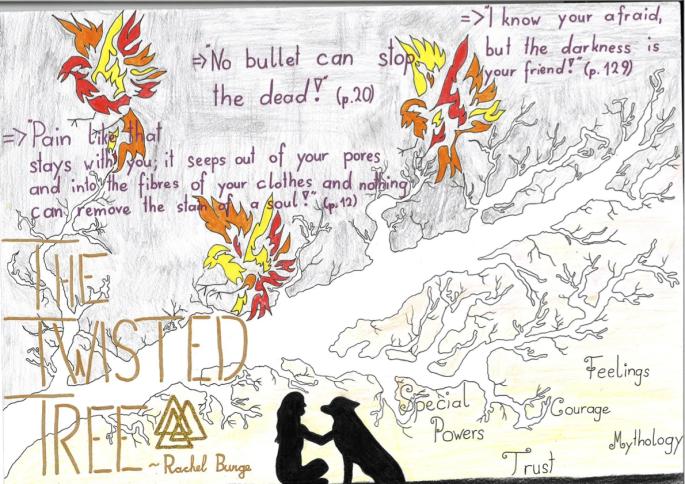 =>"I know your afraid,
but the darkness is
your friend!" (p. 129)
=>"No bullet can stop
the dead!" (p.20)
=>"Pain like that
stays with you; it seeps out of your pores
and into the fibres of your clothes and nothing
can remove the stain of a soul!" (p.12)
THE
TWISTED
TREE
~ Rachel Burge
Feelings
Special
Powers
Courage
Mythology
Trust